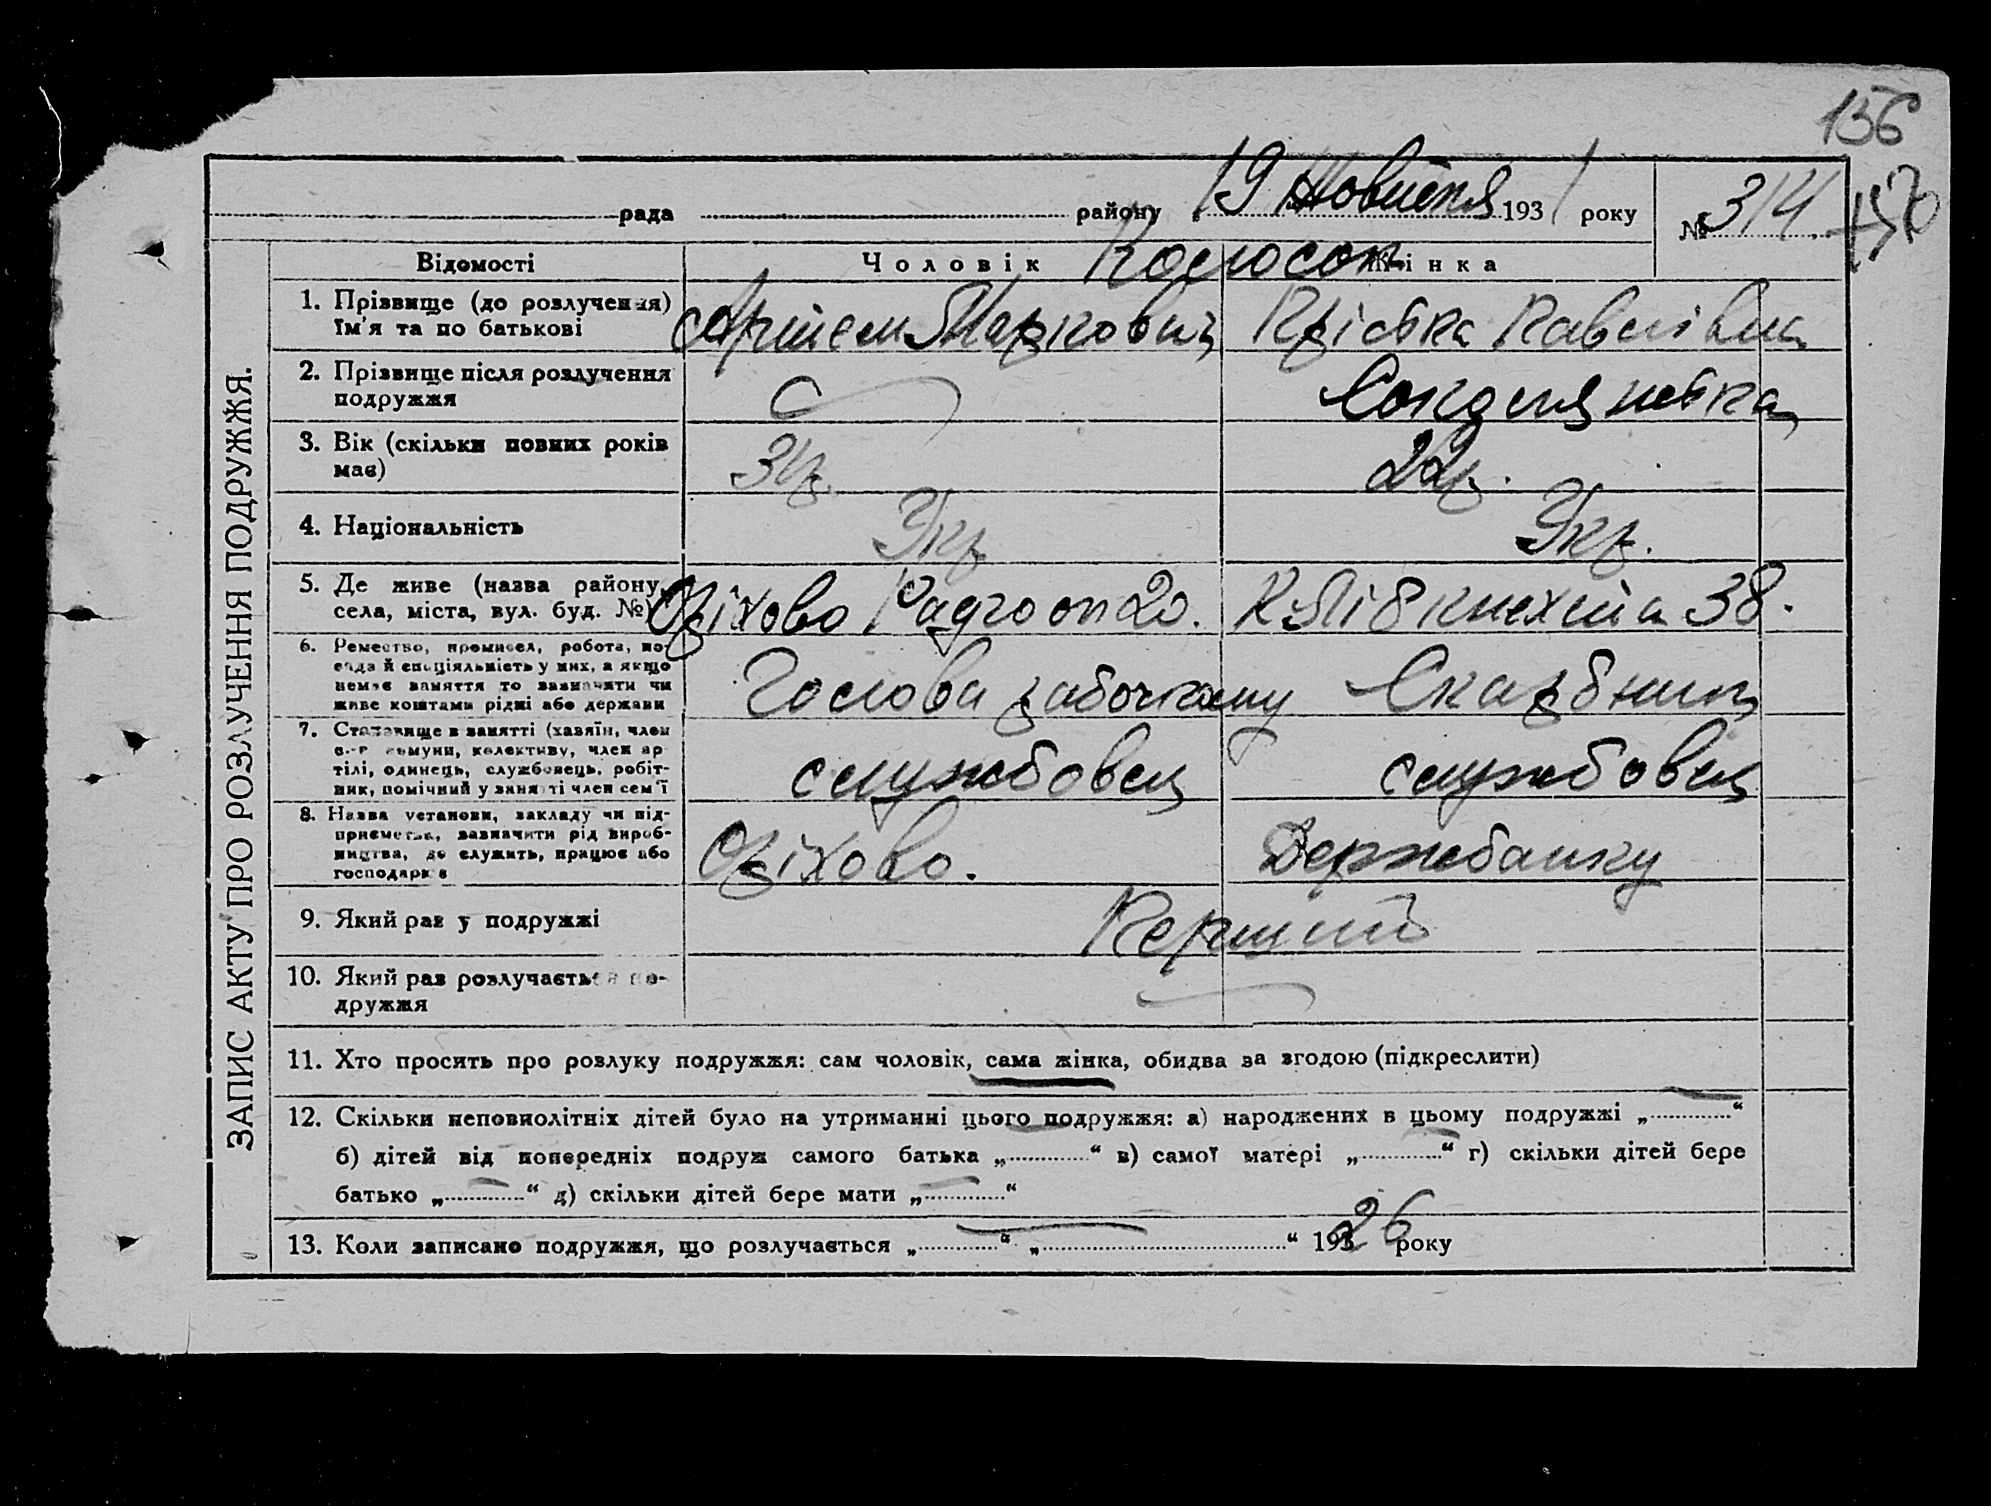 156
рада района 19 Жовтня 1931 року № 314
150
ЗАПИС АКТУ ПРО РОЗЛУЧЕННЯ ПОДРУЖЖЯ.
Відомості Чоловік Жінка
Колосок
1. Прізвище (до розлучення)
їм'я та по батькові
Артем Маркович Крістка Павлівна
2. Прізвище після розлучення
подружжя
3. Вік (скільки повних років
має)
31р. 22р.
4. Національність
Укр Укр.
5. Де живе (назва району,
села, міста, вул. буд. №)
Оріхово Радгосп 20. К Лібкнехта 38.
6. Ремество, промисел, робота, по-
сада й спеціяльність у них, а якщо
немає заняття то зазначити чи
живе коштами рідні або держави
Голова рабочкому Скарбниц
7. Становище в занятті (хазяїн, член
с.-г комуни, колективу, член ар-
тілі, одинець, службовець, робіт-
ник, помічний у занятті член сем'ї
службовец службовец
8. Назва установи, закладу чи під-
приємства, зазначити рід вироб-
ництва, де служить, працює або
господарює
Оріхово. Держбанку
9. Який раз у подружжі
Перший
10. Який раз розлучається по-
дружжя
11. Хто просить про розлуку подружжя: сам чоловік, сама жінка, обидва за згодою (підкреслити)
12. Скільки неповнолітніх дітей було на утриманні цього подружжя: а) народжених в цьому подружжі „ — “
б) дітей від попередніх подруж самого батька „ — “ в) самої матері „ — “ г) скільки дітей бере
батько „ — “ д) скільки дітей бере мати „ — “
13. Коли записано подружжя, що розлучається „ — “ „ — “ 1926 року